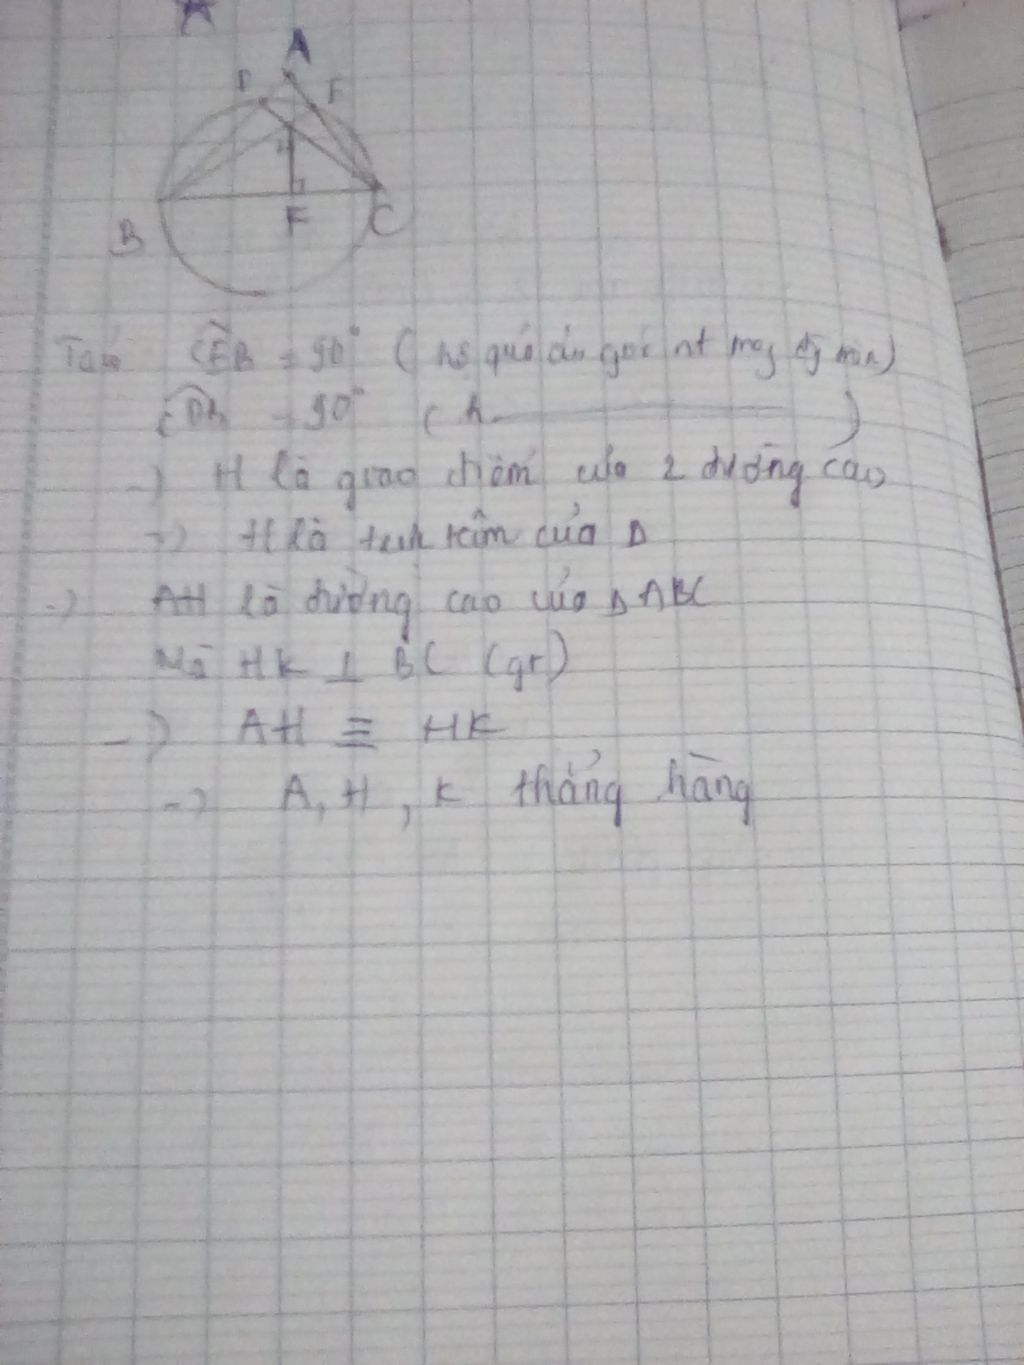 A
A
D
E
H
B
K
C
Ta có CEB = 90° (hệ quả của góc nt
CDB = 90° (h
-) H là giao điểm của 2 đường cao
-) H là trực tâm của Δ
-) AH là đường cao của Δ ABC
Mà HK ⊥ BC (gt)
-) AH ≡ HK
-) A, H, K thẳng hàng